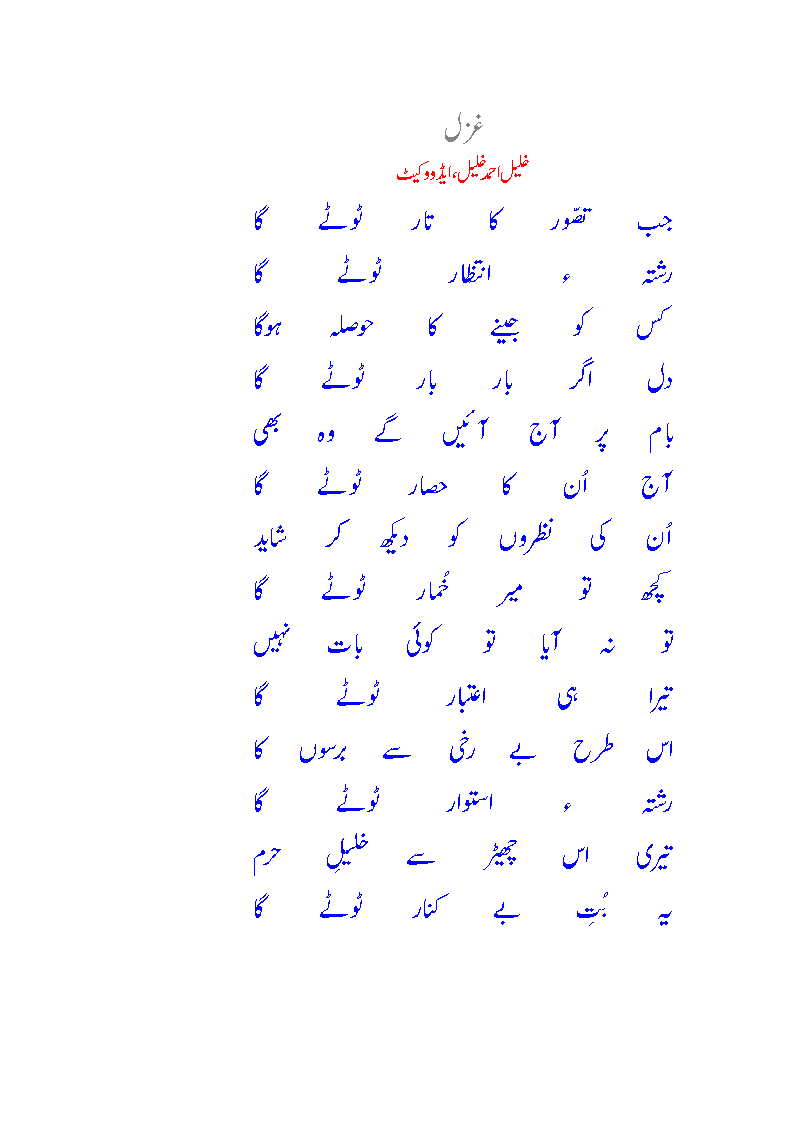 غزل
خلیل احمد خلیل، ایڈووکیٹ
جب تصّور کا تار ٹوٹے گا
رشتہ ء انتظار ٹوٹے گا
کس کو جینے کا حوصلہ ہوگا
دل اگر بار بار ٹوٹے گا
بام پر آج آئیں گے وہ بھی
آج اُن کا حصار ٹوٹے گا
اُن کی نظروں کو دیکھ کر شاید
کچھ تو میر خُمار ٹوٹے گا
تو نہ آیا تو کوئی بات نہیں
تیرا ہی اعتبار ٹوٹے گا
اس طرح بے رخی سے برسوں کا
رشتہ ء استوار ٹوٹے گا
تیری اس چھیڑ سے خلیلِ حرم
یہ بُتِ بے کنار ٹوٹے گا